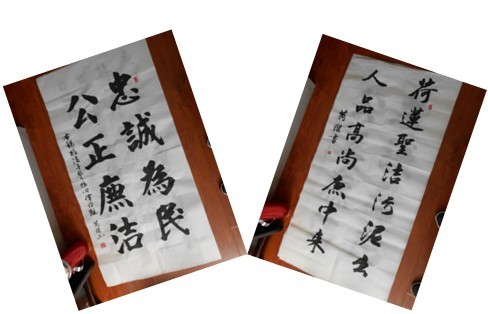 忠誠為民
公正廉洁
荷蓮聖洁污泥出
人品高尚廉中来